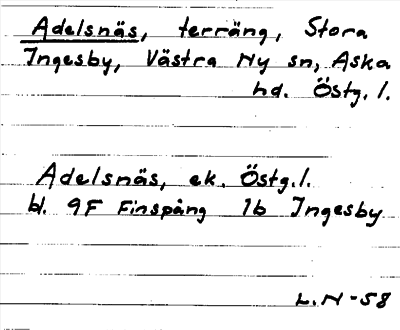 Adelsnäs, terräng, Stora
Ingesby, Västra Ny sn, Aska
hd. Östg. l.
Adelsnäs, ek. Östg. l.
bl. 9F Finspång 1b Ingesby
L. N -58